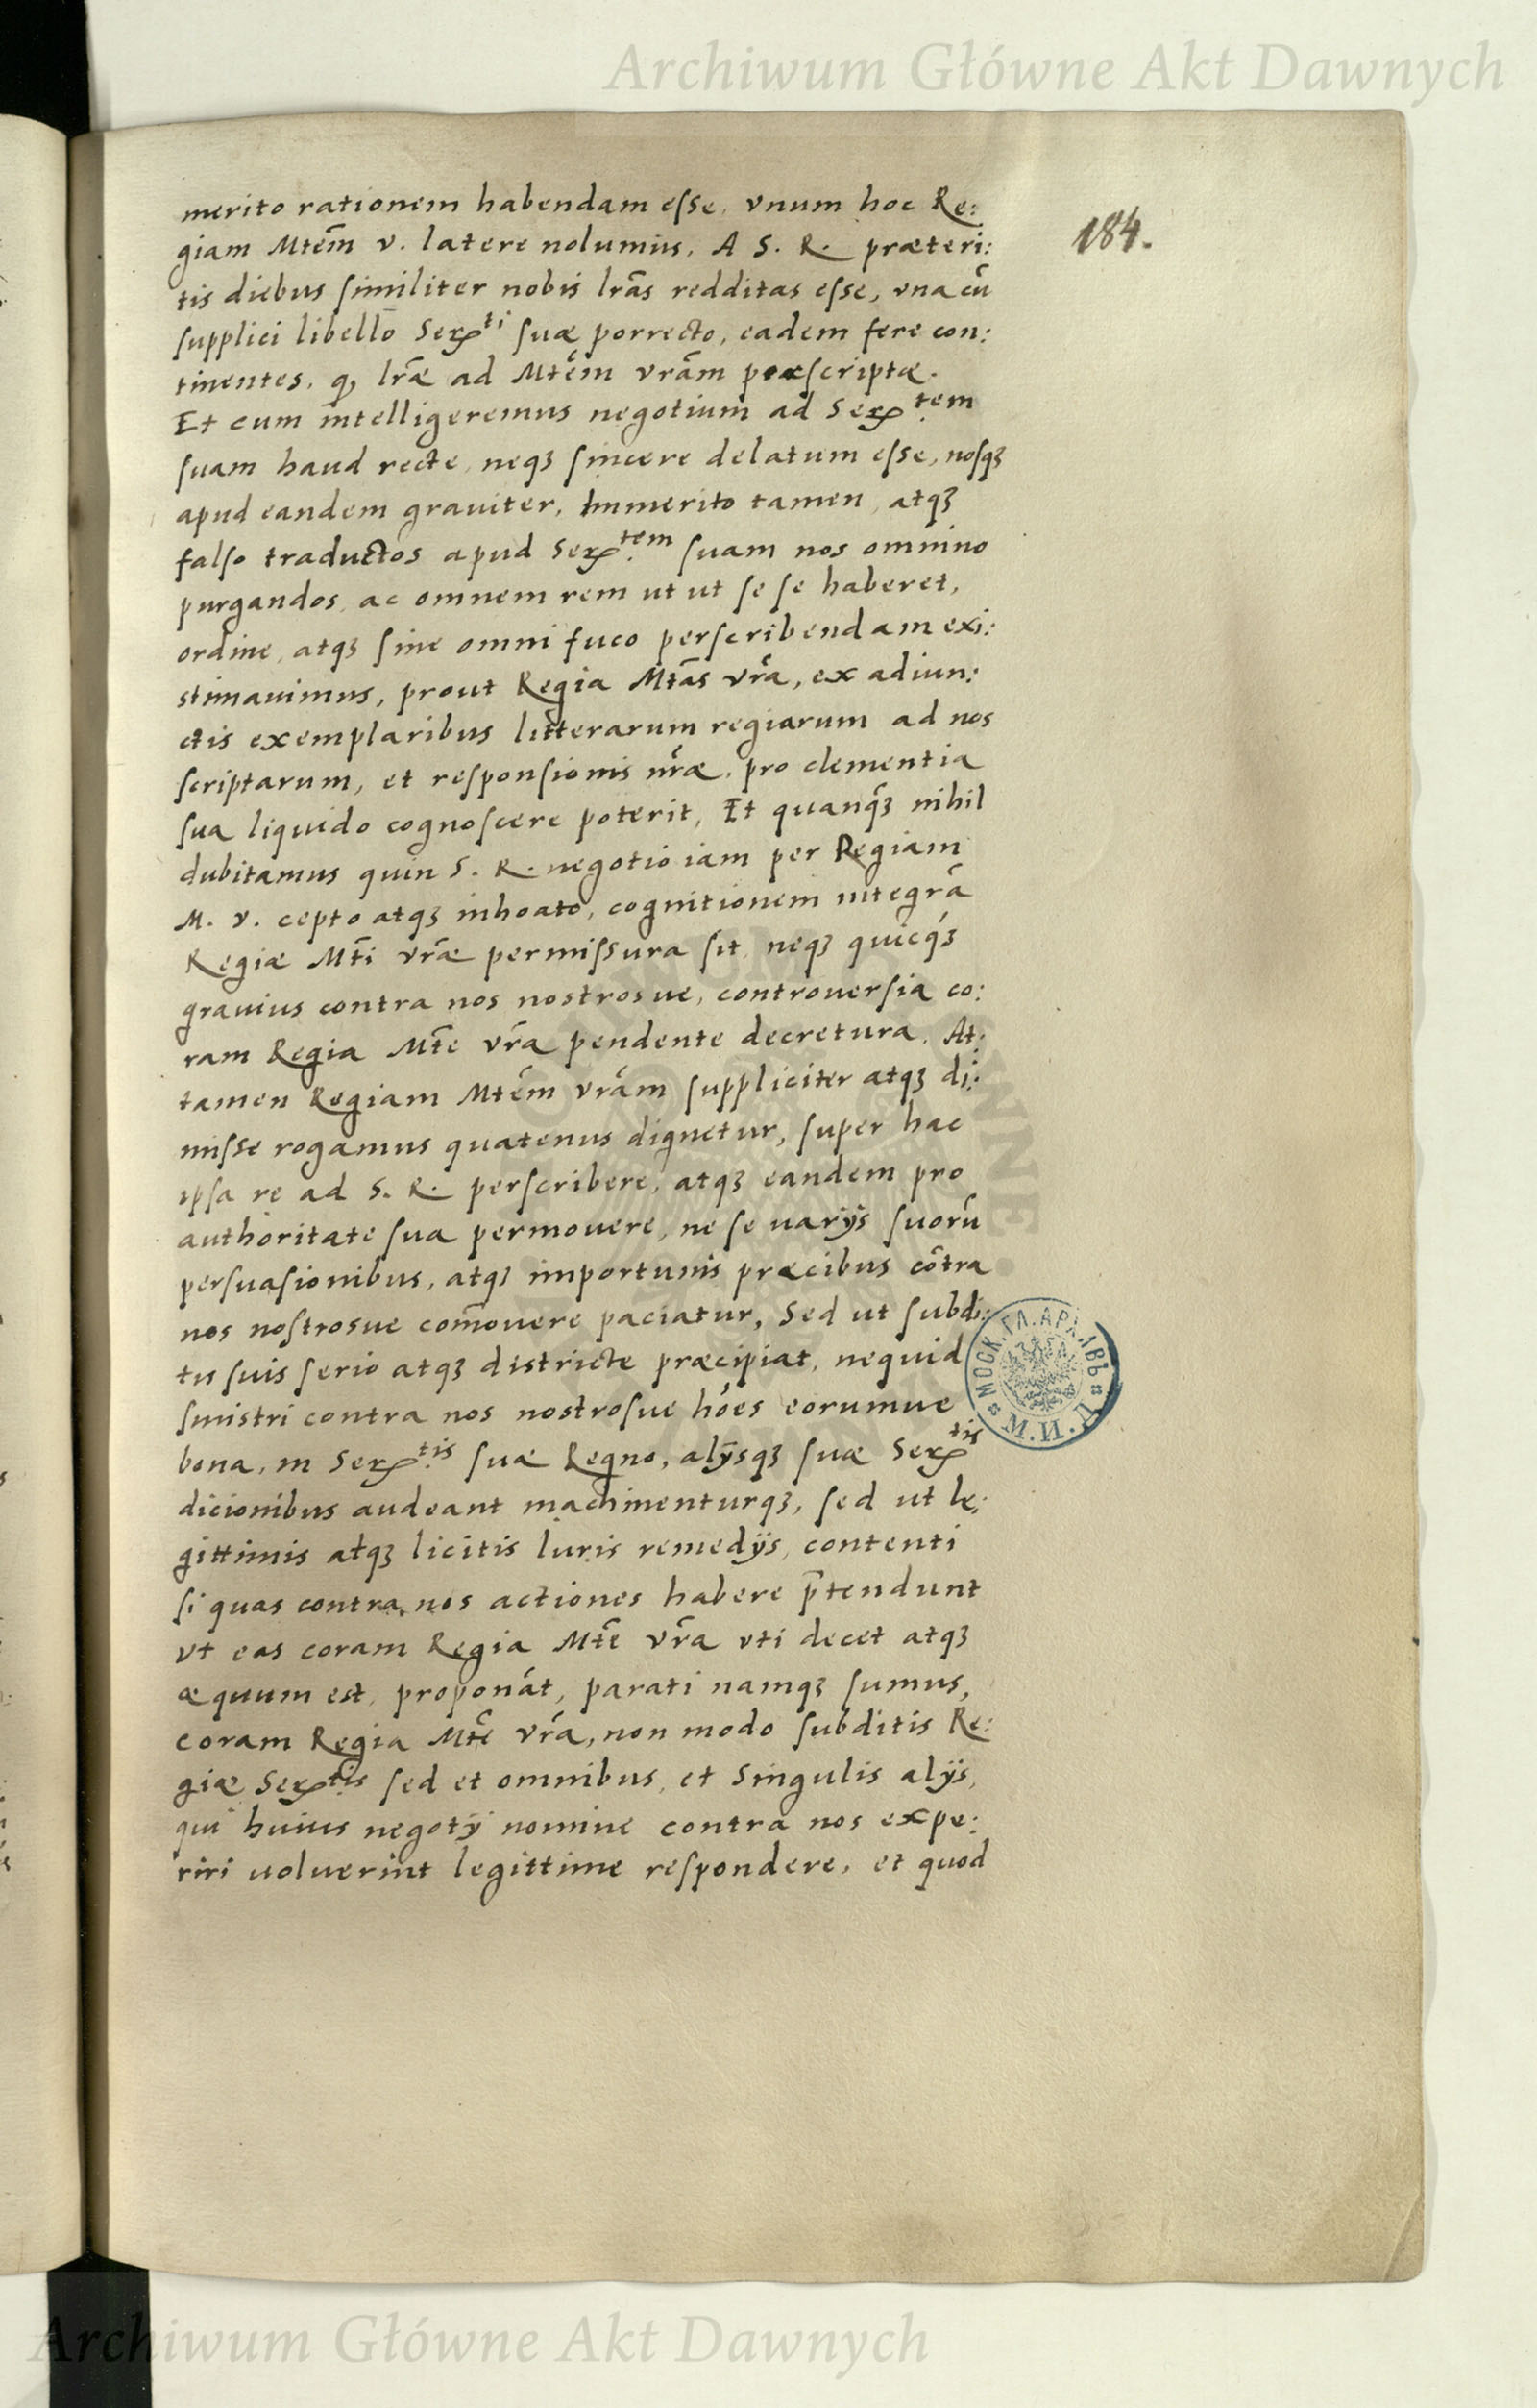 Archiwum Główne Akt Dawnych
184.
merito rationem habendam esse, vnum hoc Re:
giam Mtem̃ v. latere nolumus, A S. R. præteri:
tis diebus similiter nobis lrãs redditas esse, vna cũ
supplici libello Serᵗⁱ suæ porrecto, eadem fere con:
tinentes, q, lræ̃ ad Mtẽm vrãm præscriptæ.
Et cum intelligeremus negotium ad Serᵗᵉᵐ
suam haud recte, neqȝ sincere delatum esse, nosqȝ
apud eandem grauiter, Immerito tamen, atqȝ
falso traductos apud Serᵗᵉᵐ suam nos omnino
purgandos, ac omnem rem ut ut se se haberet,
ordine, atqȝ sine omni fuco perscribendam exi:
stimauimus, prout Regia Mtãs vrã, ex adiun:
ctis exemplaribus litterarum regiarum ad nos
scriptarum, et responsionis nræ̃, pro clementia
sua liquido cognoscere poterit, Et quanq̃ȝ nihil
dubitamus quin S. R. negotio iam per Regiam
M. v. cepto atqȝ inhoato, cognitionem integrã
Regiæ Mtĩ vræ̃ permissura sit, neqȝ quicq́ȝ
grauius contra nos nostrosue, controuersia co:
ram Regia Mtẽ vrã pendente decretura. At:
tamen Regiam Mtẽm vrãm suppliciter atqȝ di:
misse rogamus quatenus dignetur, super hac
ipsa re ad S. R. perscribere, atqȝ eandem pro
authoritate sua permouere, ne se varijs suorũ
persuasionibus, atqȝ importunis præcibus cõtra
nos nostrosue com̃ouere paciatur, Sed ut subdi:
tis suis serio atqȝ districte præcipiat, nequid
sinistri contra nos nostrosue hões eorumue
bona, in Serᵗⁱˢ suæ Regno, alijsqȝ suæ Serᵗⁱˢ
dicionibus audeant machinenturqȝ, sed ut le:
gittimis atqȝ licitis Iuris remedijs, contenti
si quas contra nos actiones habere p̃tendunt
vt eas coram Regia Mtẽ vrã vti decet atqȝ
æquum est, proponãt, parati namqȝ sumus,
coram Regia Mtẽ vrã, non modo subditis Re:
giæ Serᵗⁱˢ sed et omnibus, et Singulis alijs,
qui huius negotij nomine contra nos expe:
riri uoluerint legittime respondere, et quod
МОСК. ГЛ. АРХИВЪ
М.И.Д.
Archiwum Główne Akt Dawnych